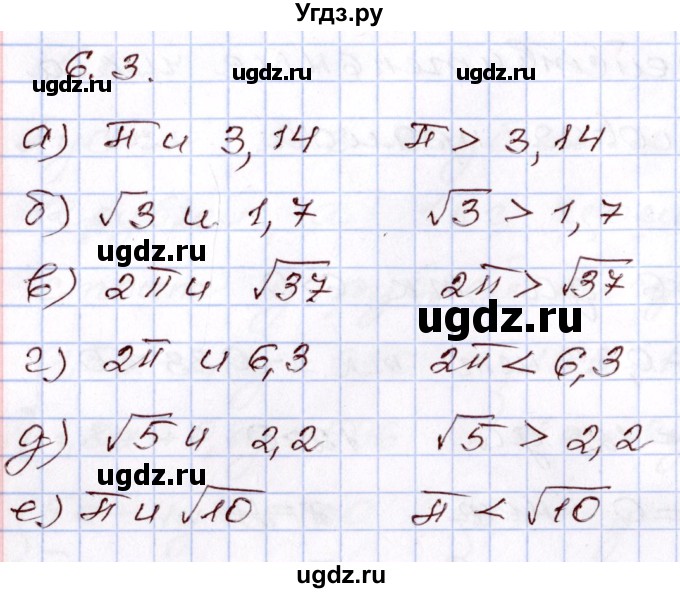 Угдз.ру
6.3.
ugdz.ru ugdz.ru ugdz.ru
а) π и 3,14 π > 3,14
б) √3 и 1,7 √3 > 1,7
ugdz.ru ugdz.ru
в) 2π и √37 2π > √37
ugdz.ru
г) 2π и 6,3 2π < 6,3
д) √5 и 2,2 √5 > 2,2
ugdz.ru ugdz.ru
е) π и √10 π < √10
ugdz.ru